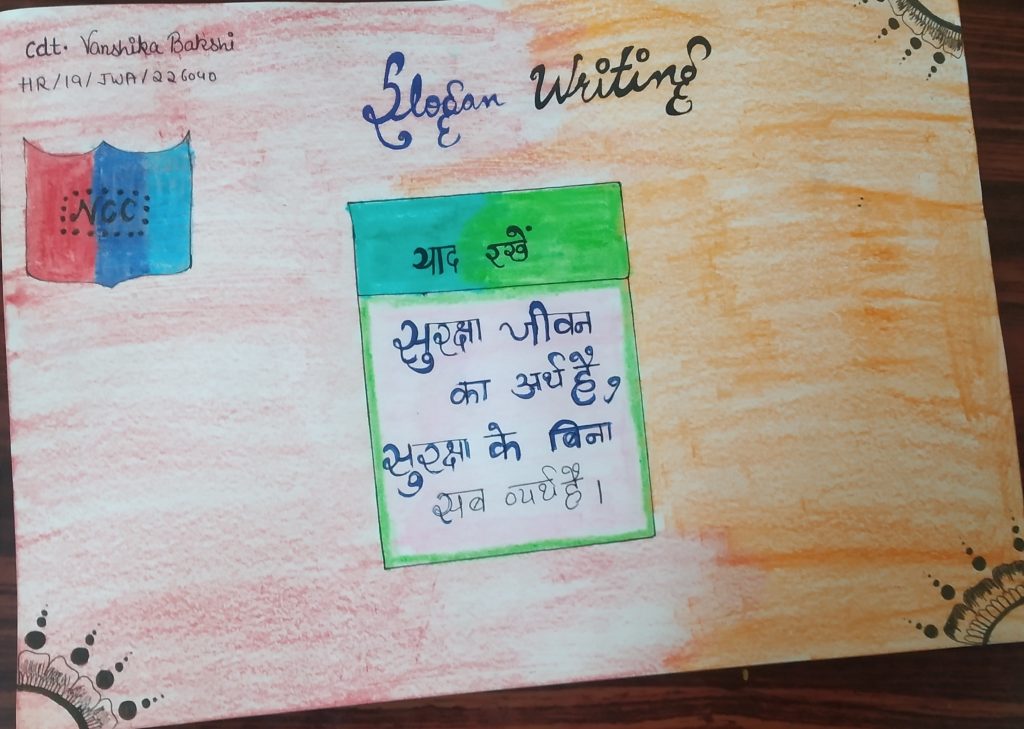 Cdt. Vanshika Bakshi
HR/19/JWA/226040
Slogan Writing
NCC
याद रखें
सुरक्षा जीवन
का अर्थ है,
सुरक्षा के बिना
सब व्यर्थ है।